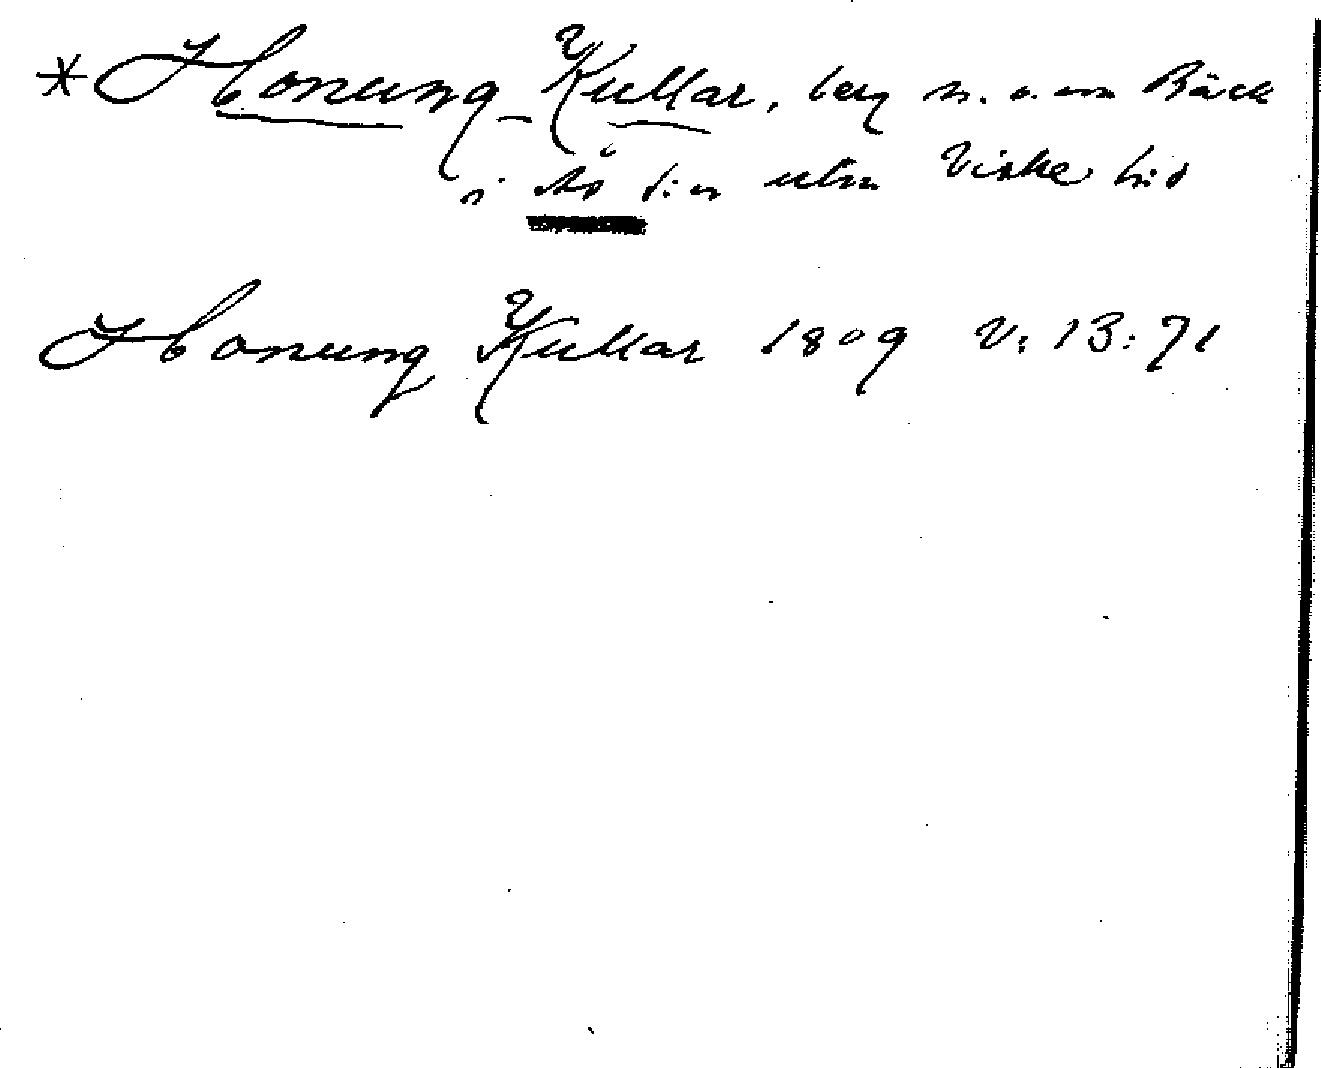 * Honung Kullar, berg n. o. om Bäck
i Ås s:n utm Viske hd
Honung Kullar 1809 V: 13: 71